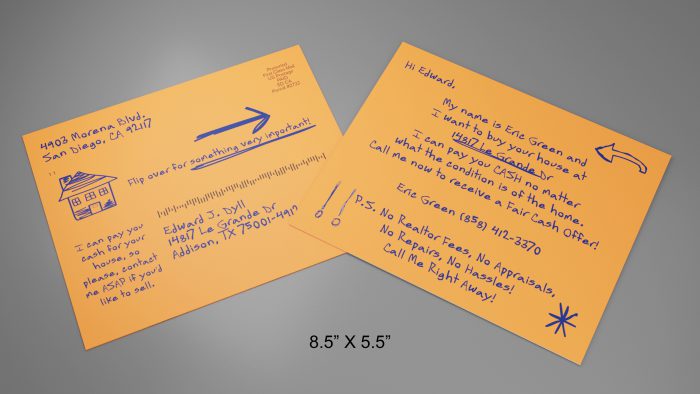 Presorted
First Class Mail
US Postage
PAID
SD CA
Permit #2722
4903 Morena Blvd.
San Diego, CA 92117
Flip over for something very important!
I can pay you
cash for your
house, so
please, contact
me ASAP if you'd
like to sell.
Edward J. Dyll
14817 Le Grande Dr
Addison, TX 75001-491
Hi Edward,
My name is Eric Green and
I want to buy your house at
14817 Le Grande Dr
I can pay you CASH no matter
what the condition is of the home.
Call me now to receive a Fair Cash Offer!
Eric Green (858) 412-3370
P.S. No Realtor Fees, No Appraisals,
No Repairs, No Hassles!
Call Me Right Away!
8.5” X 5.5”